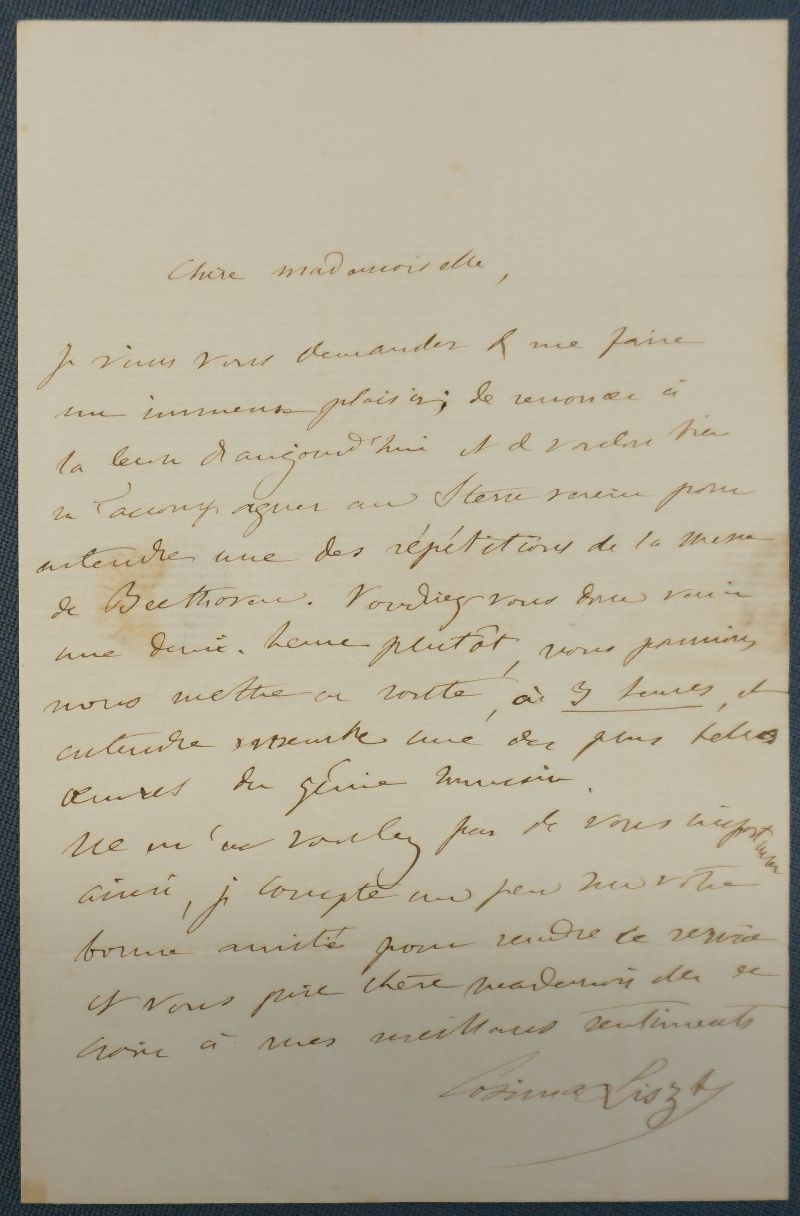 Chère mademoiselle,
Je viens vous demander de me faire
un immense plaisir; de renoncer à
la leçon d'aujourd'hui et de vouloir bien
m'accompagner au Stern verein pour
entendre une des répétitions de la messe
de Beethoven. Voudriez vous donc venir
une demie-heure plutôt, nous pourrions
nous mettre en route, à 3 heures, et
entendre ensemble une des plus belles
œuvres du génie humain.
Ne m'en voulez pas de vous importuner
ainsi, je compte un peu sur votre
bonne amitié pour rendre ce service
et vous prie chère mademoiselle de
croire à mes meilleurs sentiments
Cosima Liszt